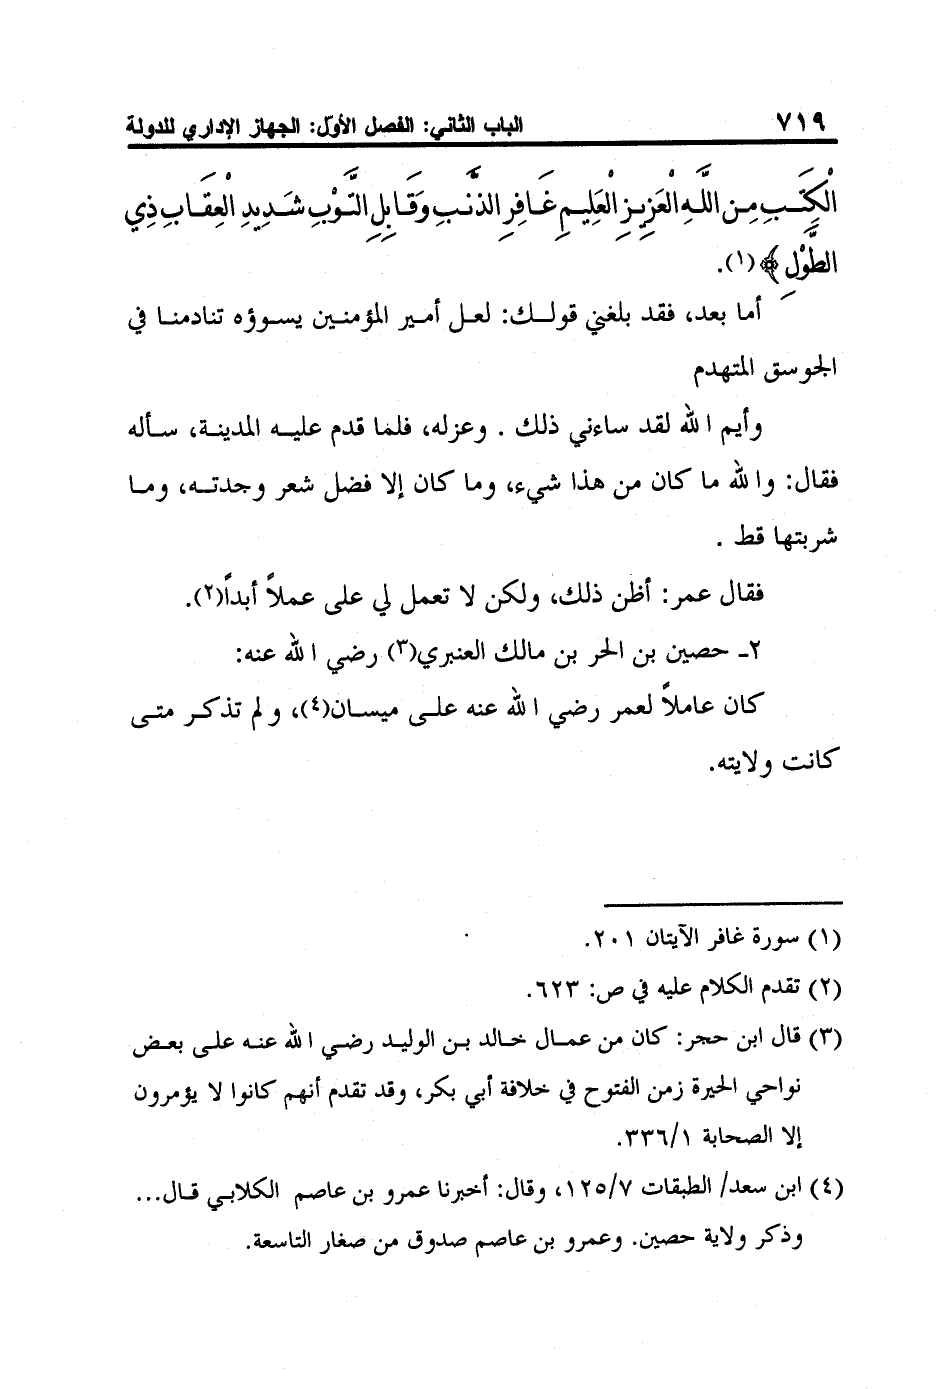 ٧١٩ الباب الثاني: الفصل الأول: الجهاز الإداري للدولة
الْكِتَـٰبِ مِنَ اللَّهِ الْعَزِيزِ الْعَلِيمِ غَافِرِ الذَّنبِ وَقَابِلِ التَّوْبِ شَدِيدِ الْعِقَابِ ذِي
الطَّوْلِ ﴾(١).
أما بعد، فقد بلغني قولك: لعل أمير المؤمنين يسوؤه تنادمنا في
الجوسق المتهدم
وأيم الله لقد ساءني ذلك . وعزله، فلما قدم عليه المدينة، سأله
فقال: والله ما كان من هذا شيء، وما كان إلا فضل شعر وجدته، وما
شربتها قط .
فقال عمر: أظن ذلك، ولكن لا تعمل لي على عملاً أبداً(٢).
٢ـ حصين بن الحر بن مالك العنبري(٣) رضي الله عنه:
كان عاملاً لعمر رضي الله عنه على ميسان(٤)، ولم تذكر متى
كانت ولايته.
(١) سورة غافر الآيتان ٢٠١.
(٢) تقدم الكلام عليه في ص: ٦٢٣.
(٣) قال ابن حجر: كان من عمال خالد بن الوليد رضي الله عنه على بعض
نواحي الحيرة زمن الفتوح في خلافة أبي بكر، وقد تقدم أنهم كانوا لا يؤمرون
إلا الصحابة ٣٣٦/١.
(٤) ابن سعد/ الطبقات ١٢٥/٧، وقال: أخبرنا عمرو بن عاصم الكلابي قال...
وذكر ولاية حصين. وعمرو بن عاصم صدوق من صغار التاسعة.